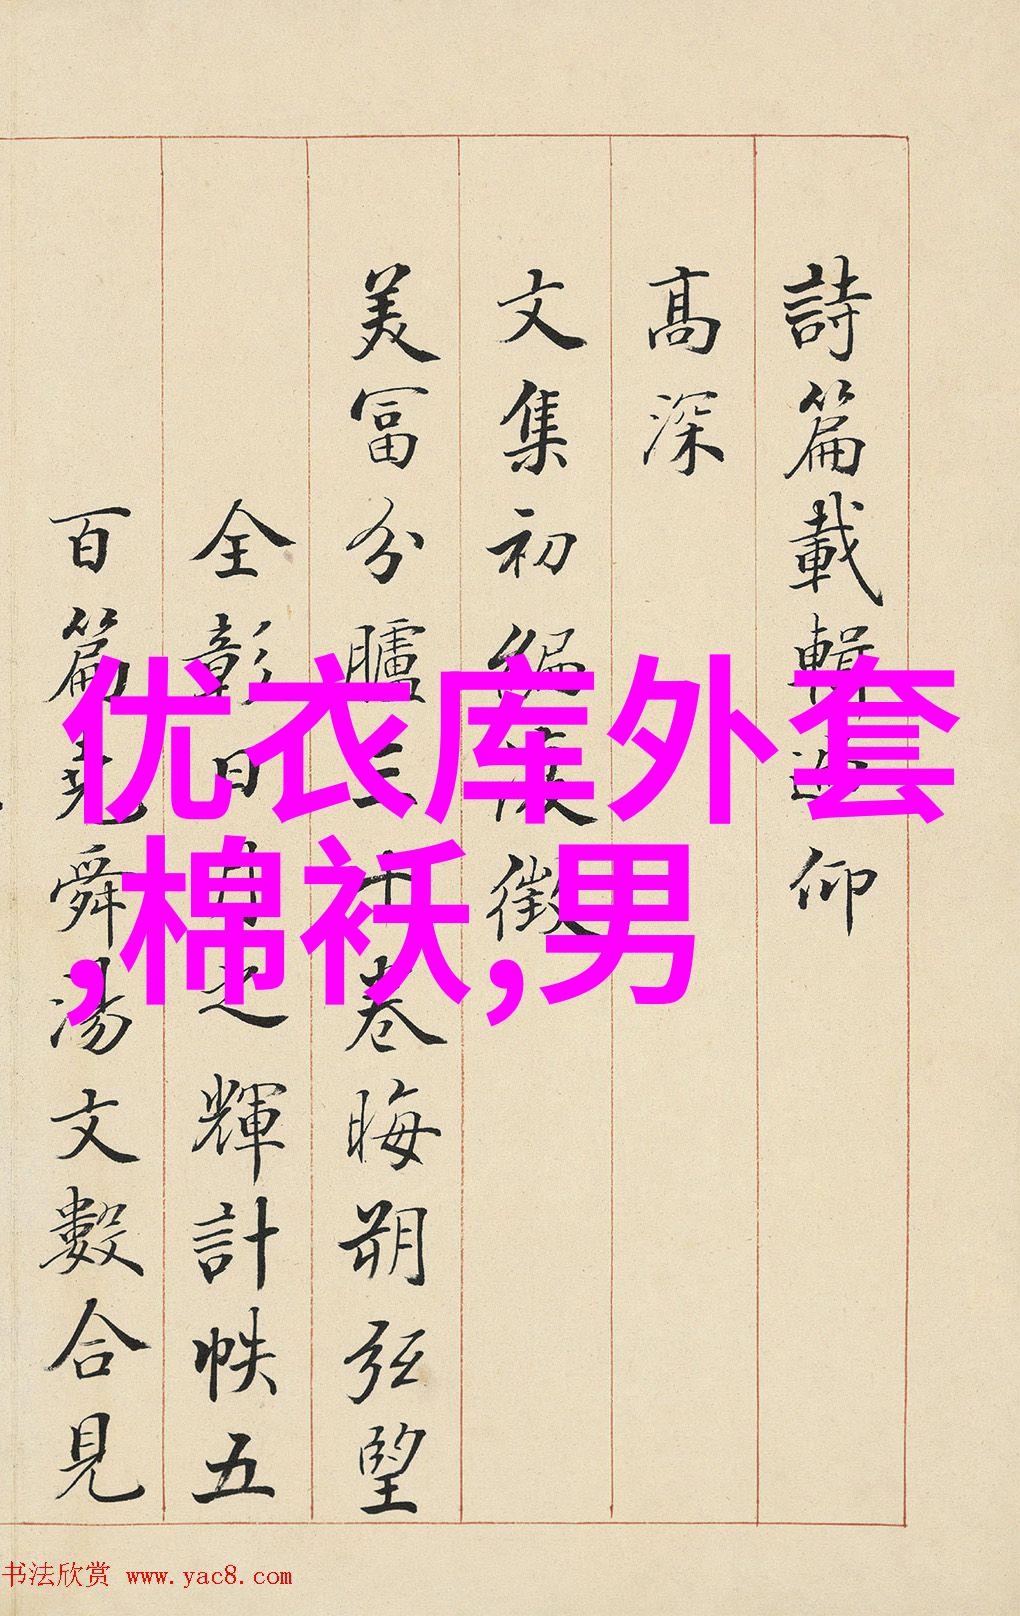 詩篇載輯迎仰
高深
文集初編後徵
美富分臚三十卷晦朔弦望
全彰日月之輝計帙五
百篇堯舜湯文數合見
优衣库外套
,棉袄,男
书法欣赏 www.yac8.com